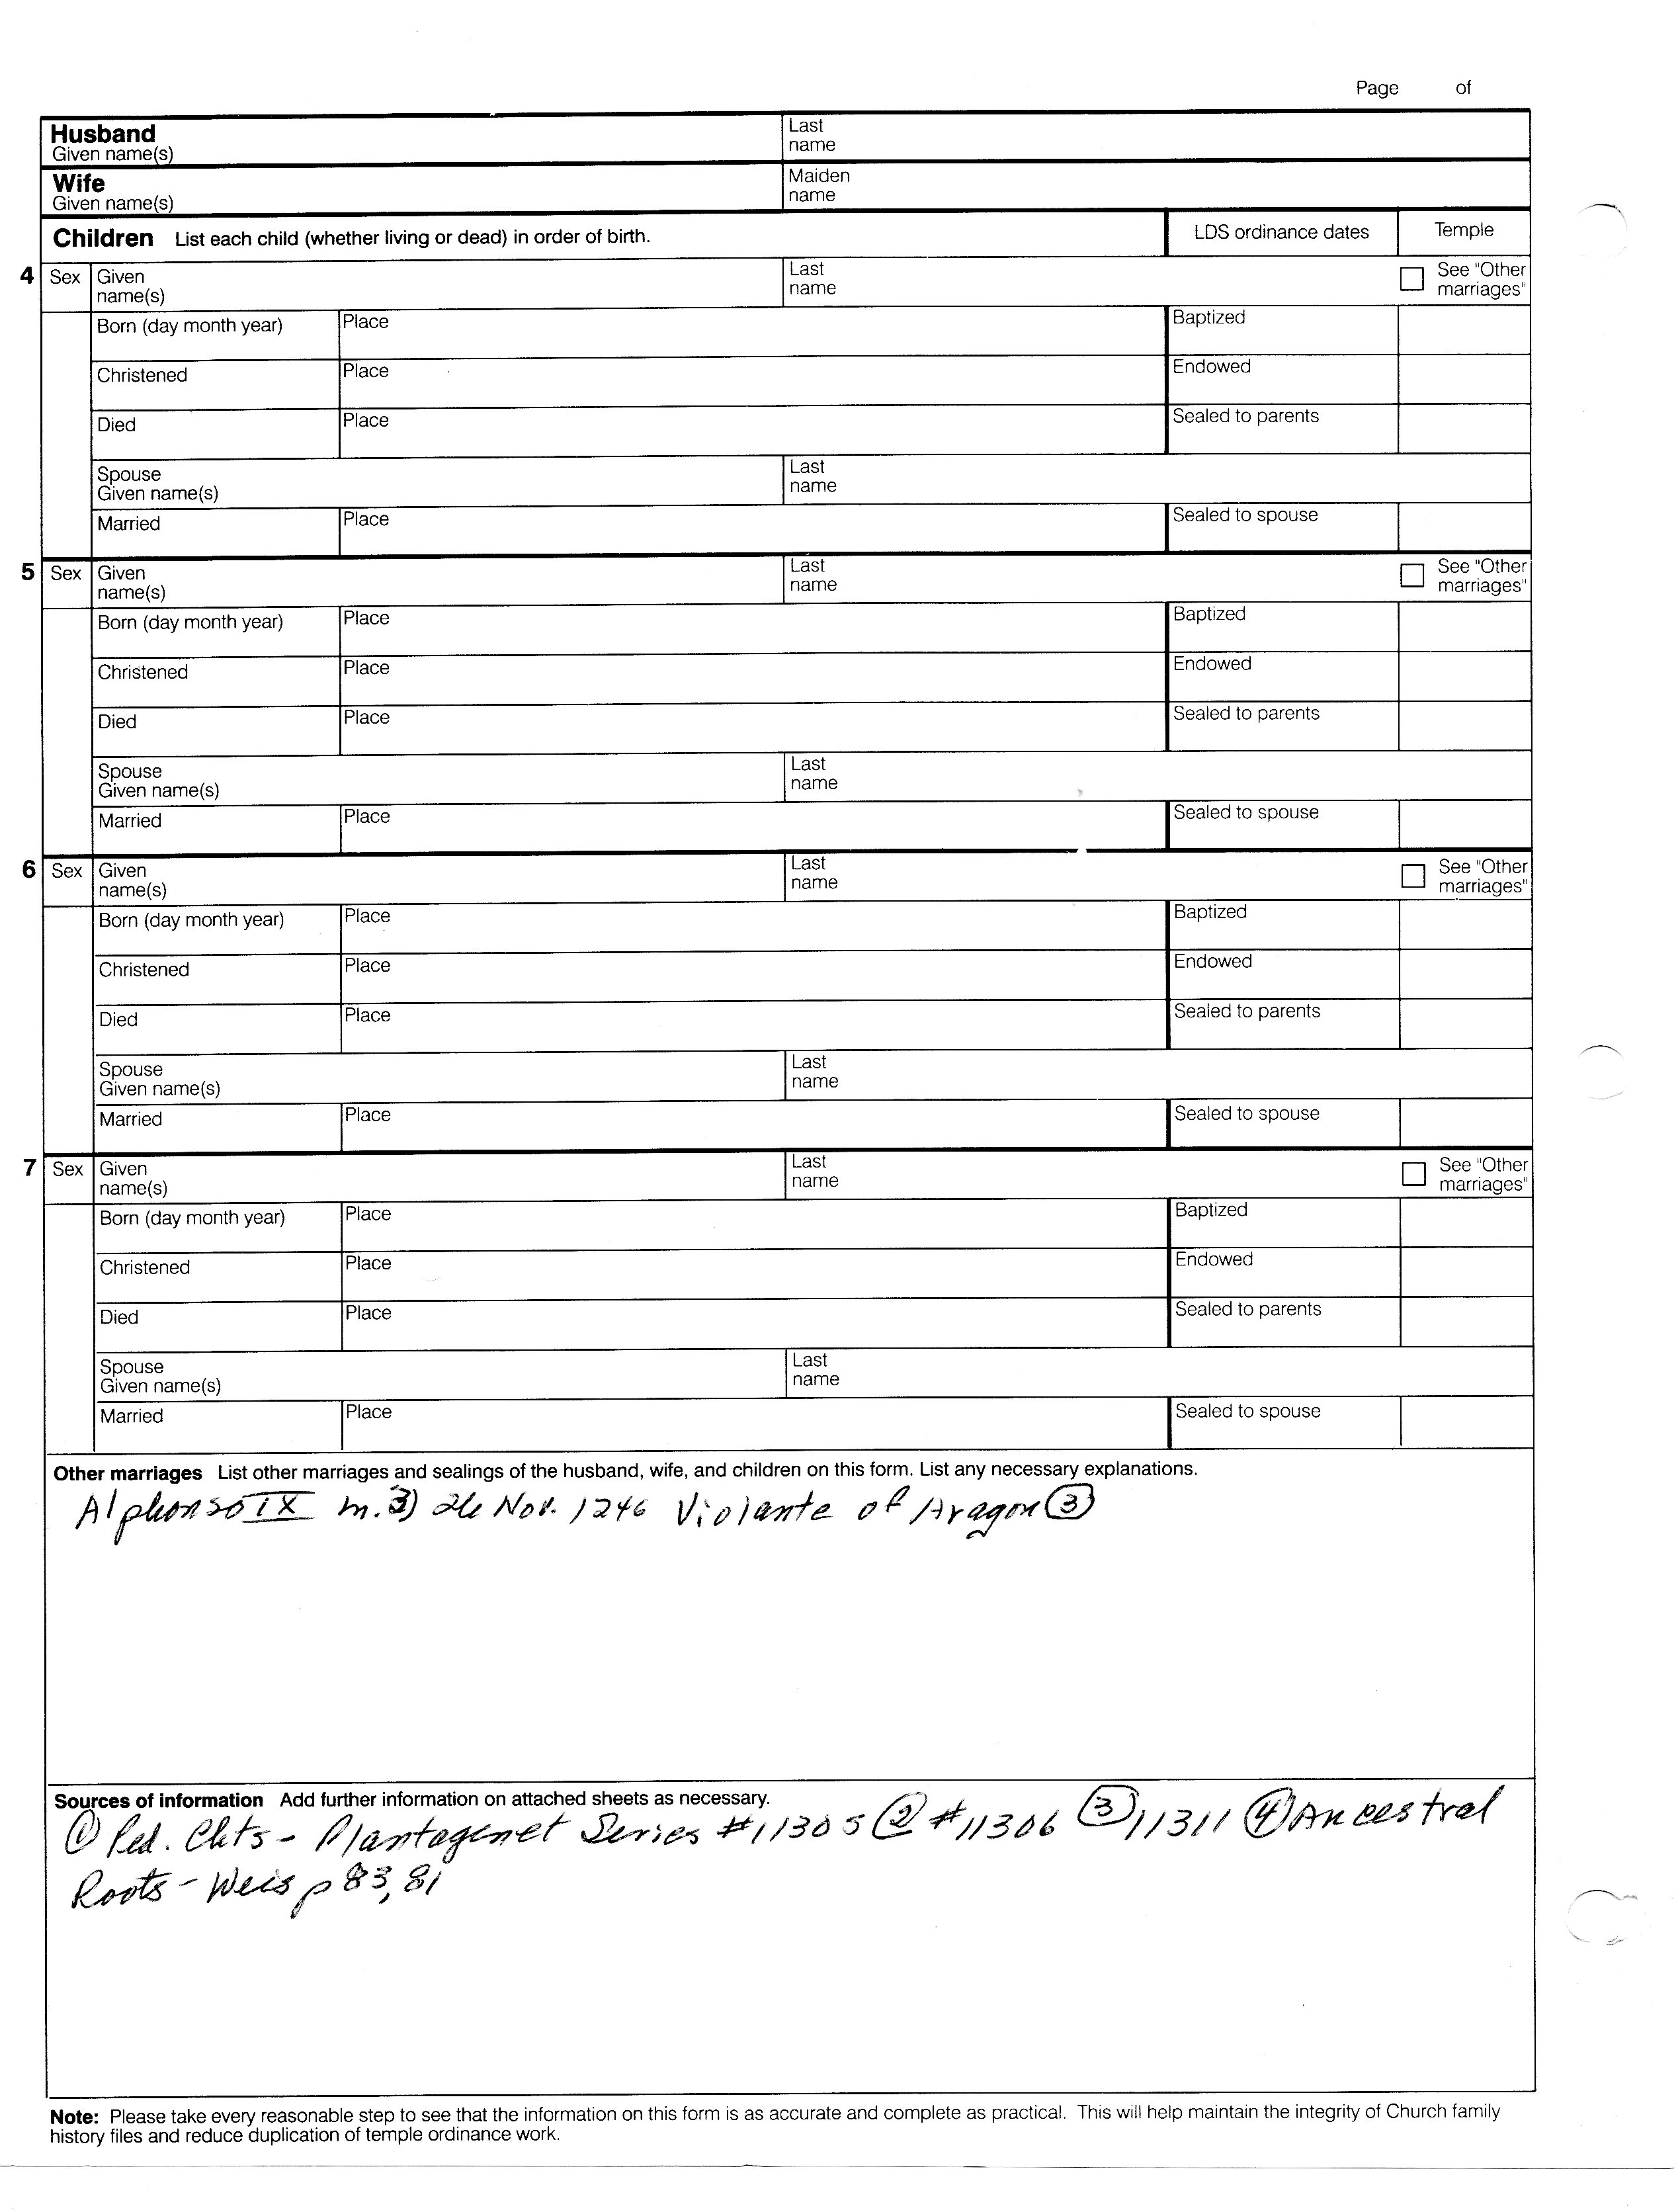 Page of
Husband
Given name(s)
Last
name
Wife
Given name(s)
Maiden
name
Children List each child (whether living or dead) in order of birth.
LDS ordinance dates
Temple
4 Sex Given
name(s)
Last
name
See "Other
marriages"
Born (day month year) Place Baptized
Christened Place Endowed
Died Place Sealed to parents
Spouse
Given name(s)
Last
name
Married Place Sealed to spouse
5 Sex Given
name(s)
Last
name
See "Other
marriages"
Born (day month year) Place Baptized
Christened Place Endowed
Died Place Sealed to parents
Spouse
Given name(s)
Last
name
Married Place Sealed to spouse
6 Sex Given
name(s)
Last
name
See "Other
marriages"
Born (day month year) Place Baptized
Christened Place Endowed
Died Place Sealed to parents
Spouse
Given name(s)
Last
name
Married Place Sealed to spouse
7 Sex Given
name(s)
Last
name
See "Other
marriages"
Born (day month year) Place Baptized
Christened Place Endowed
Died Place Sealed to parents
Spouse
Given name(s)
Last
name
Married Place Sealed to spouse
Other marriages List other marriages and sealings of the husband, wife, and children on this form. List any necessary explanations.
Alphonso IX m. 3) 26 Nov. 1246 Violante of Aragon ③
Sources of information Add further information on attached sheets as necessary.
① Ped. Chts - Plantagenet Series #11305 ② #11306 ③ 11311 ④ Ancestral
Roots - Weis p 83, 81
Note: Please take every reasonable step to see that the information on this form is as accurate and complete as practical. This will help maintain the integrity of Church family
history files and reduce duplication of temple ordinance work.